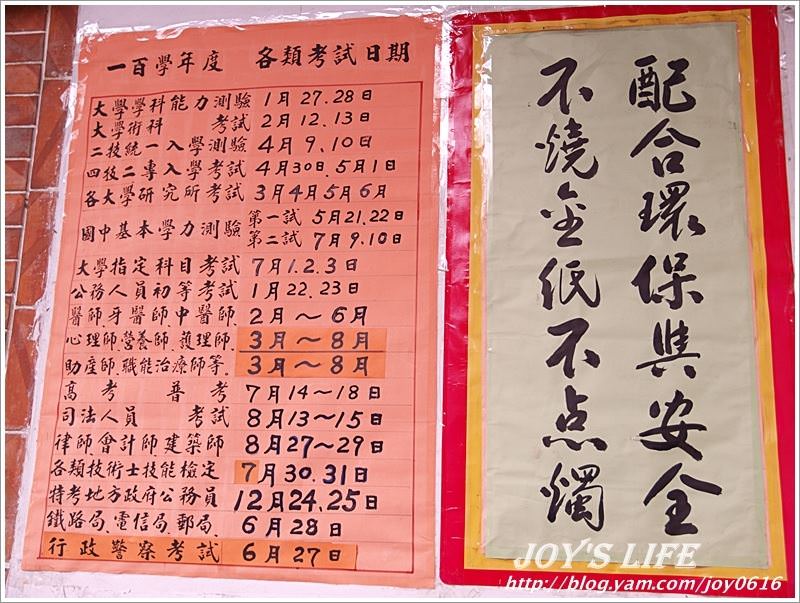 一百學年度 各類考試日期
大學學科能力測驗 1月27.28日
大學術科 考試 2月12.13日
二技統一入學測驗 4月9.10日
四技二專入學考試 4月30日.5月1日
各大學研究所考試 3月4月5月6月
國中基本學力測驗 第一試 5月21.22日
第二試 7月9.10日
大學指定科目考試 7月1.2.3日
公務人員初等考試 1月22.23日
醫師.牙醫師中醫師. 2月～6月
心理師.營養師.護理師. 3月～8月
助產師.職能治療師等. 3月～8月
高考 普考 7月14～18日
司法人員 考試 8月13～15日
律師會計師建築師 8月27～29日
各類技術士技能檢定 7月30.31日
特考地方政府公務員 12月24.25日
鐵路局.電信局.郵局. 6月28日
行政警察考試 6月27日
配合環保與安全
不燒金紙不点燭
JOY'S LIFE
http://blog.yam.com/joy0616